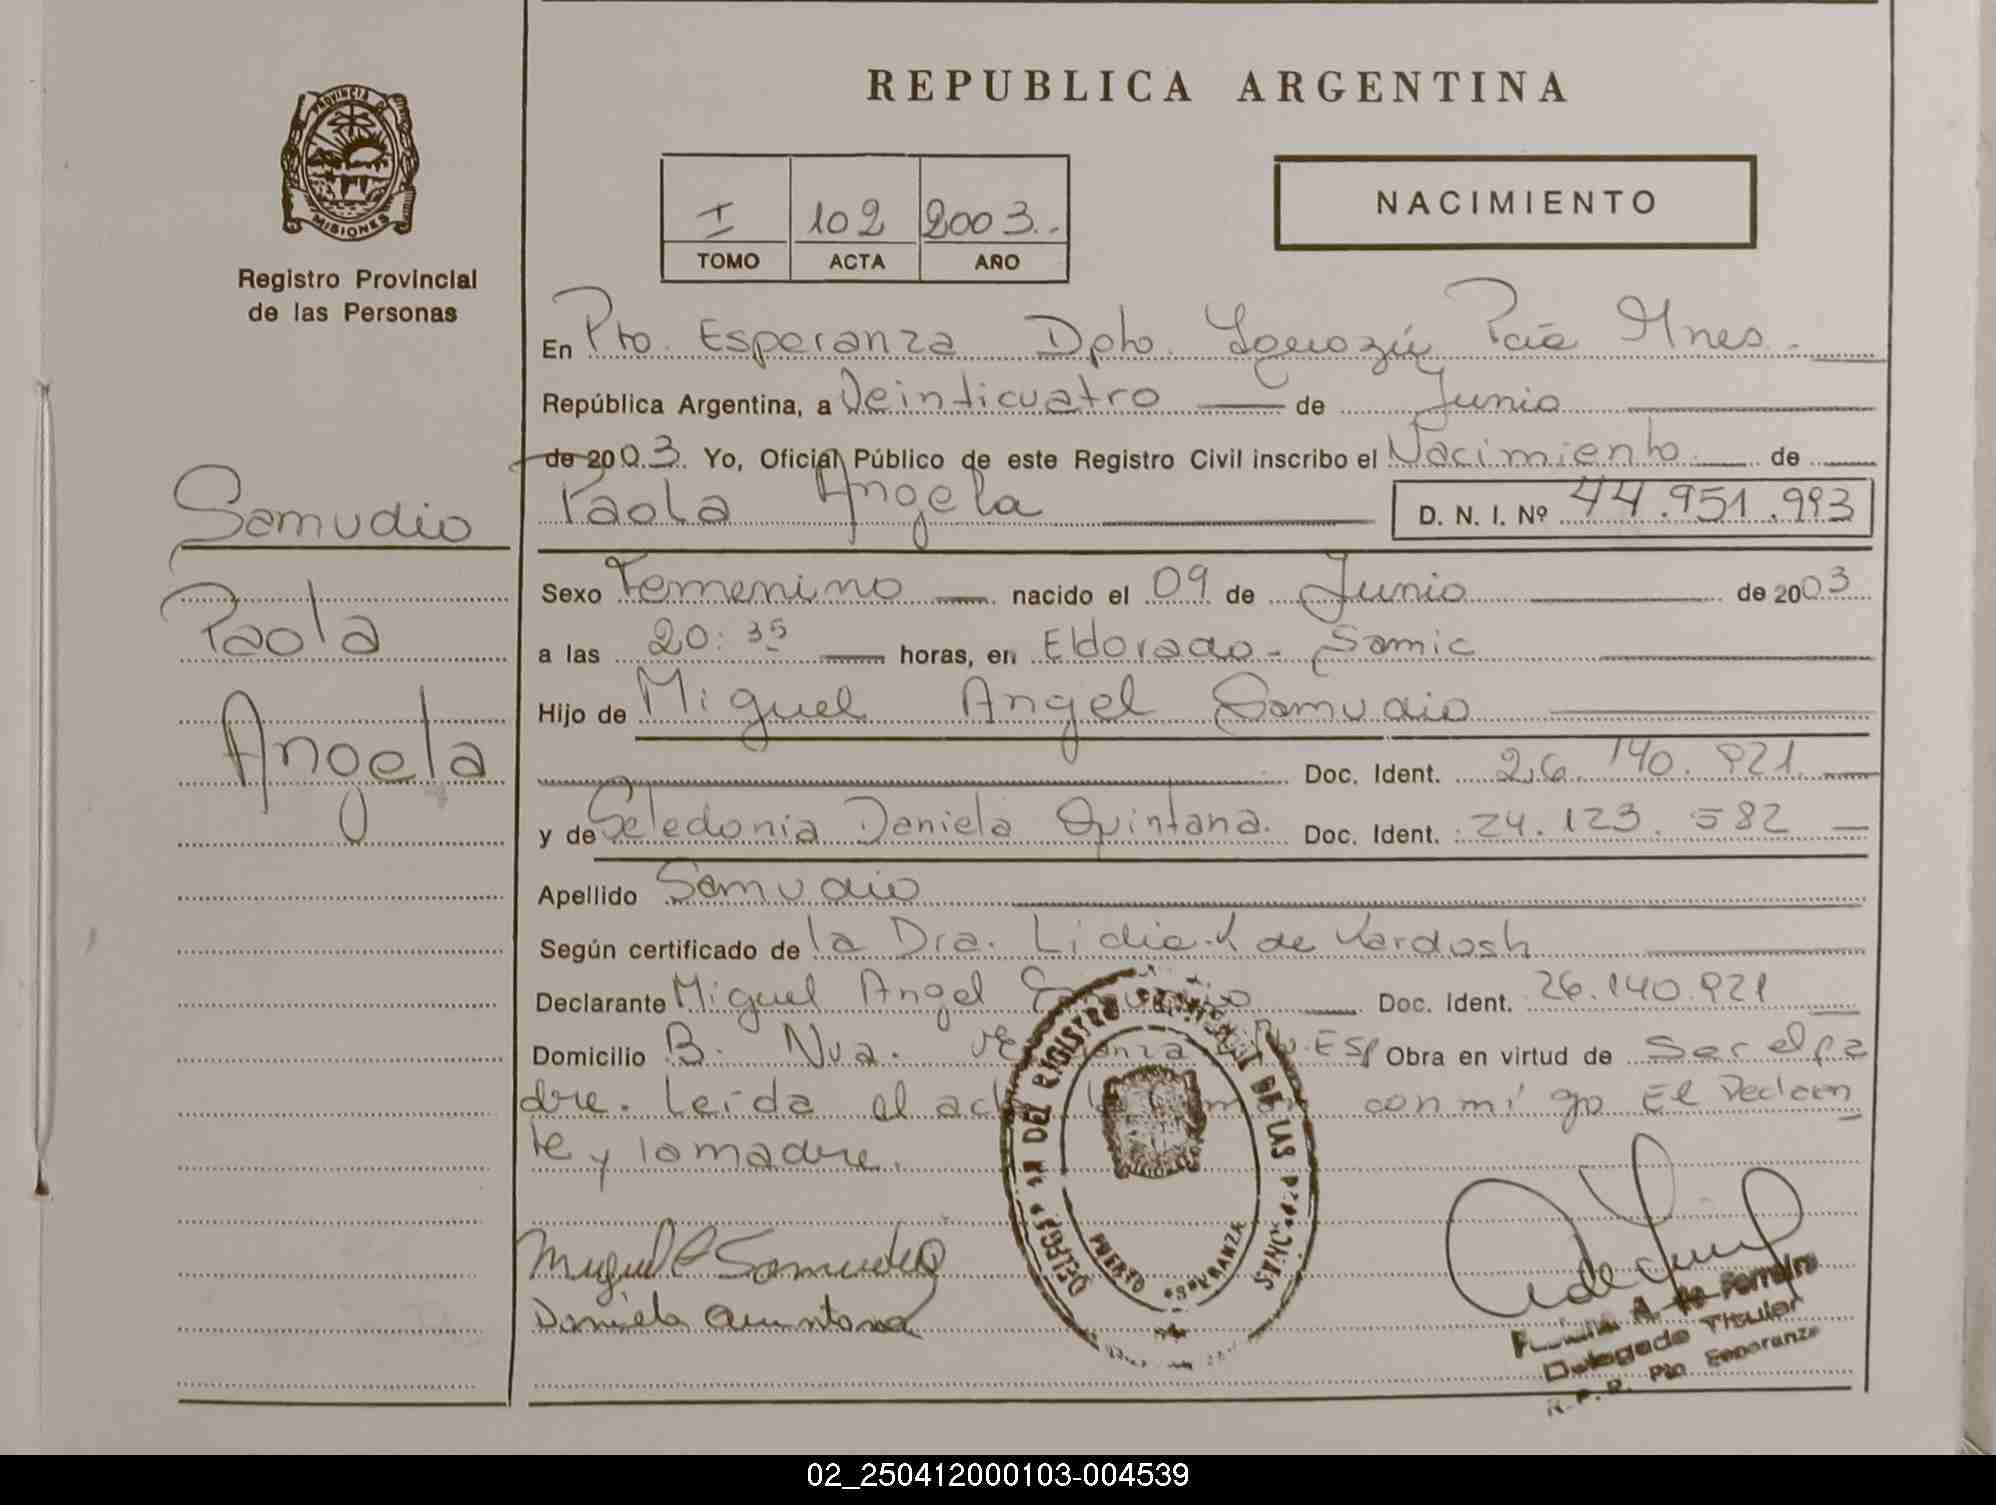 REPUBLICA ARGENTINA
PROVINCIA DE
MISIONES
Registro Provincial
de las Personas
I 102 2003..
TOMO ACTA AÑO
NACIMIENTO
Samudio
Paola
Angela
En Pto. Esperanza Dpto. Iguazú Pcia Mnes.
República Argentina, a Veinticuatro de Junio
de 2003. Yo, Oficial Público de este Registro Civil inscribo el Nacimiento de
Paola Angela D. N. I. Nº 44.951.993
Sexo Femenino nacido el 09 de Junio de 2003
a las 20:35 horas, en Eldorado - Samic
Hijo de Miguel Angel Samudio
Doc. Ident. 26.140.921
y de Seledonia Daniela Quintana. Doc. Ident. 24.123.582
Apellido Samudio
Según certificado de la Dra. Lidia K de Kardosh
Declarante Miguel Angel Samudio Doc. Ident. 26.140.921
Domicilio B. Nva. Pto. Esp Obra en virtud de Ser el pa
dre. Leida el acta la firman con mi go El Declaran
te y la madre.
Miguel A Samudio
Daniela Quintana
DEL REGISTRO DE LAS PERSONAS
PUERTO ESPERANZA
A. de Ferreira
Delegada Titular
R. P. P. Pto. Esperanza
02_250412000103-004539